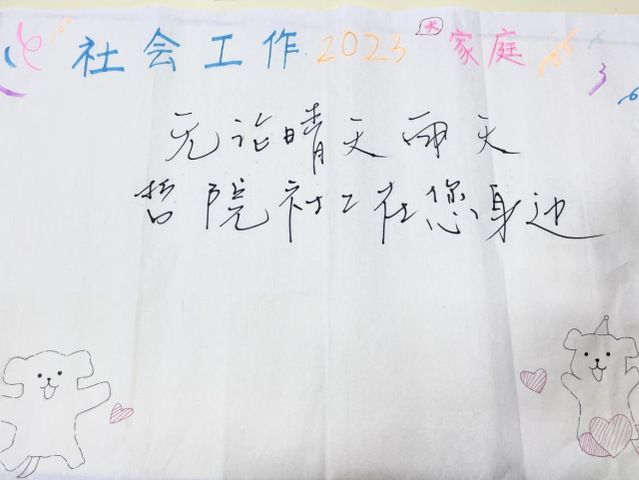 社会工作2023大家庭
无论晴天雨天
哲院社工在您身边